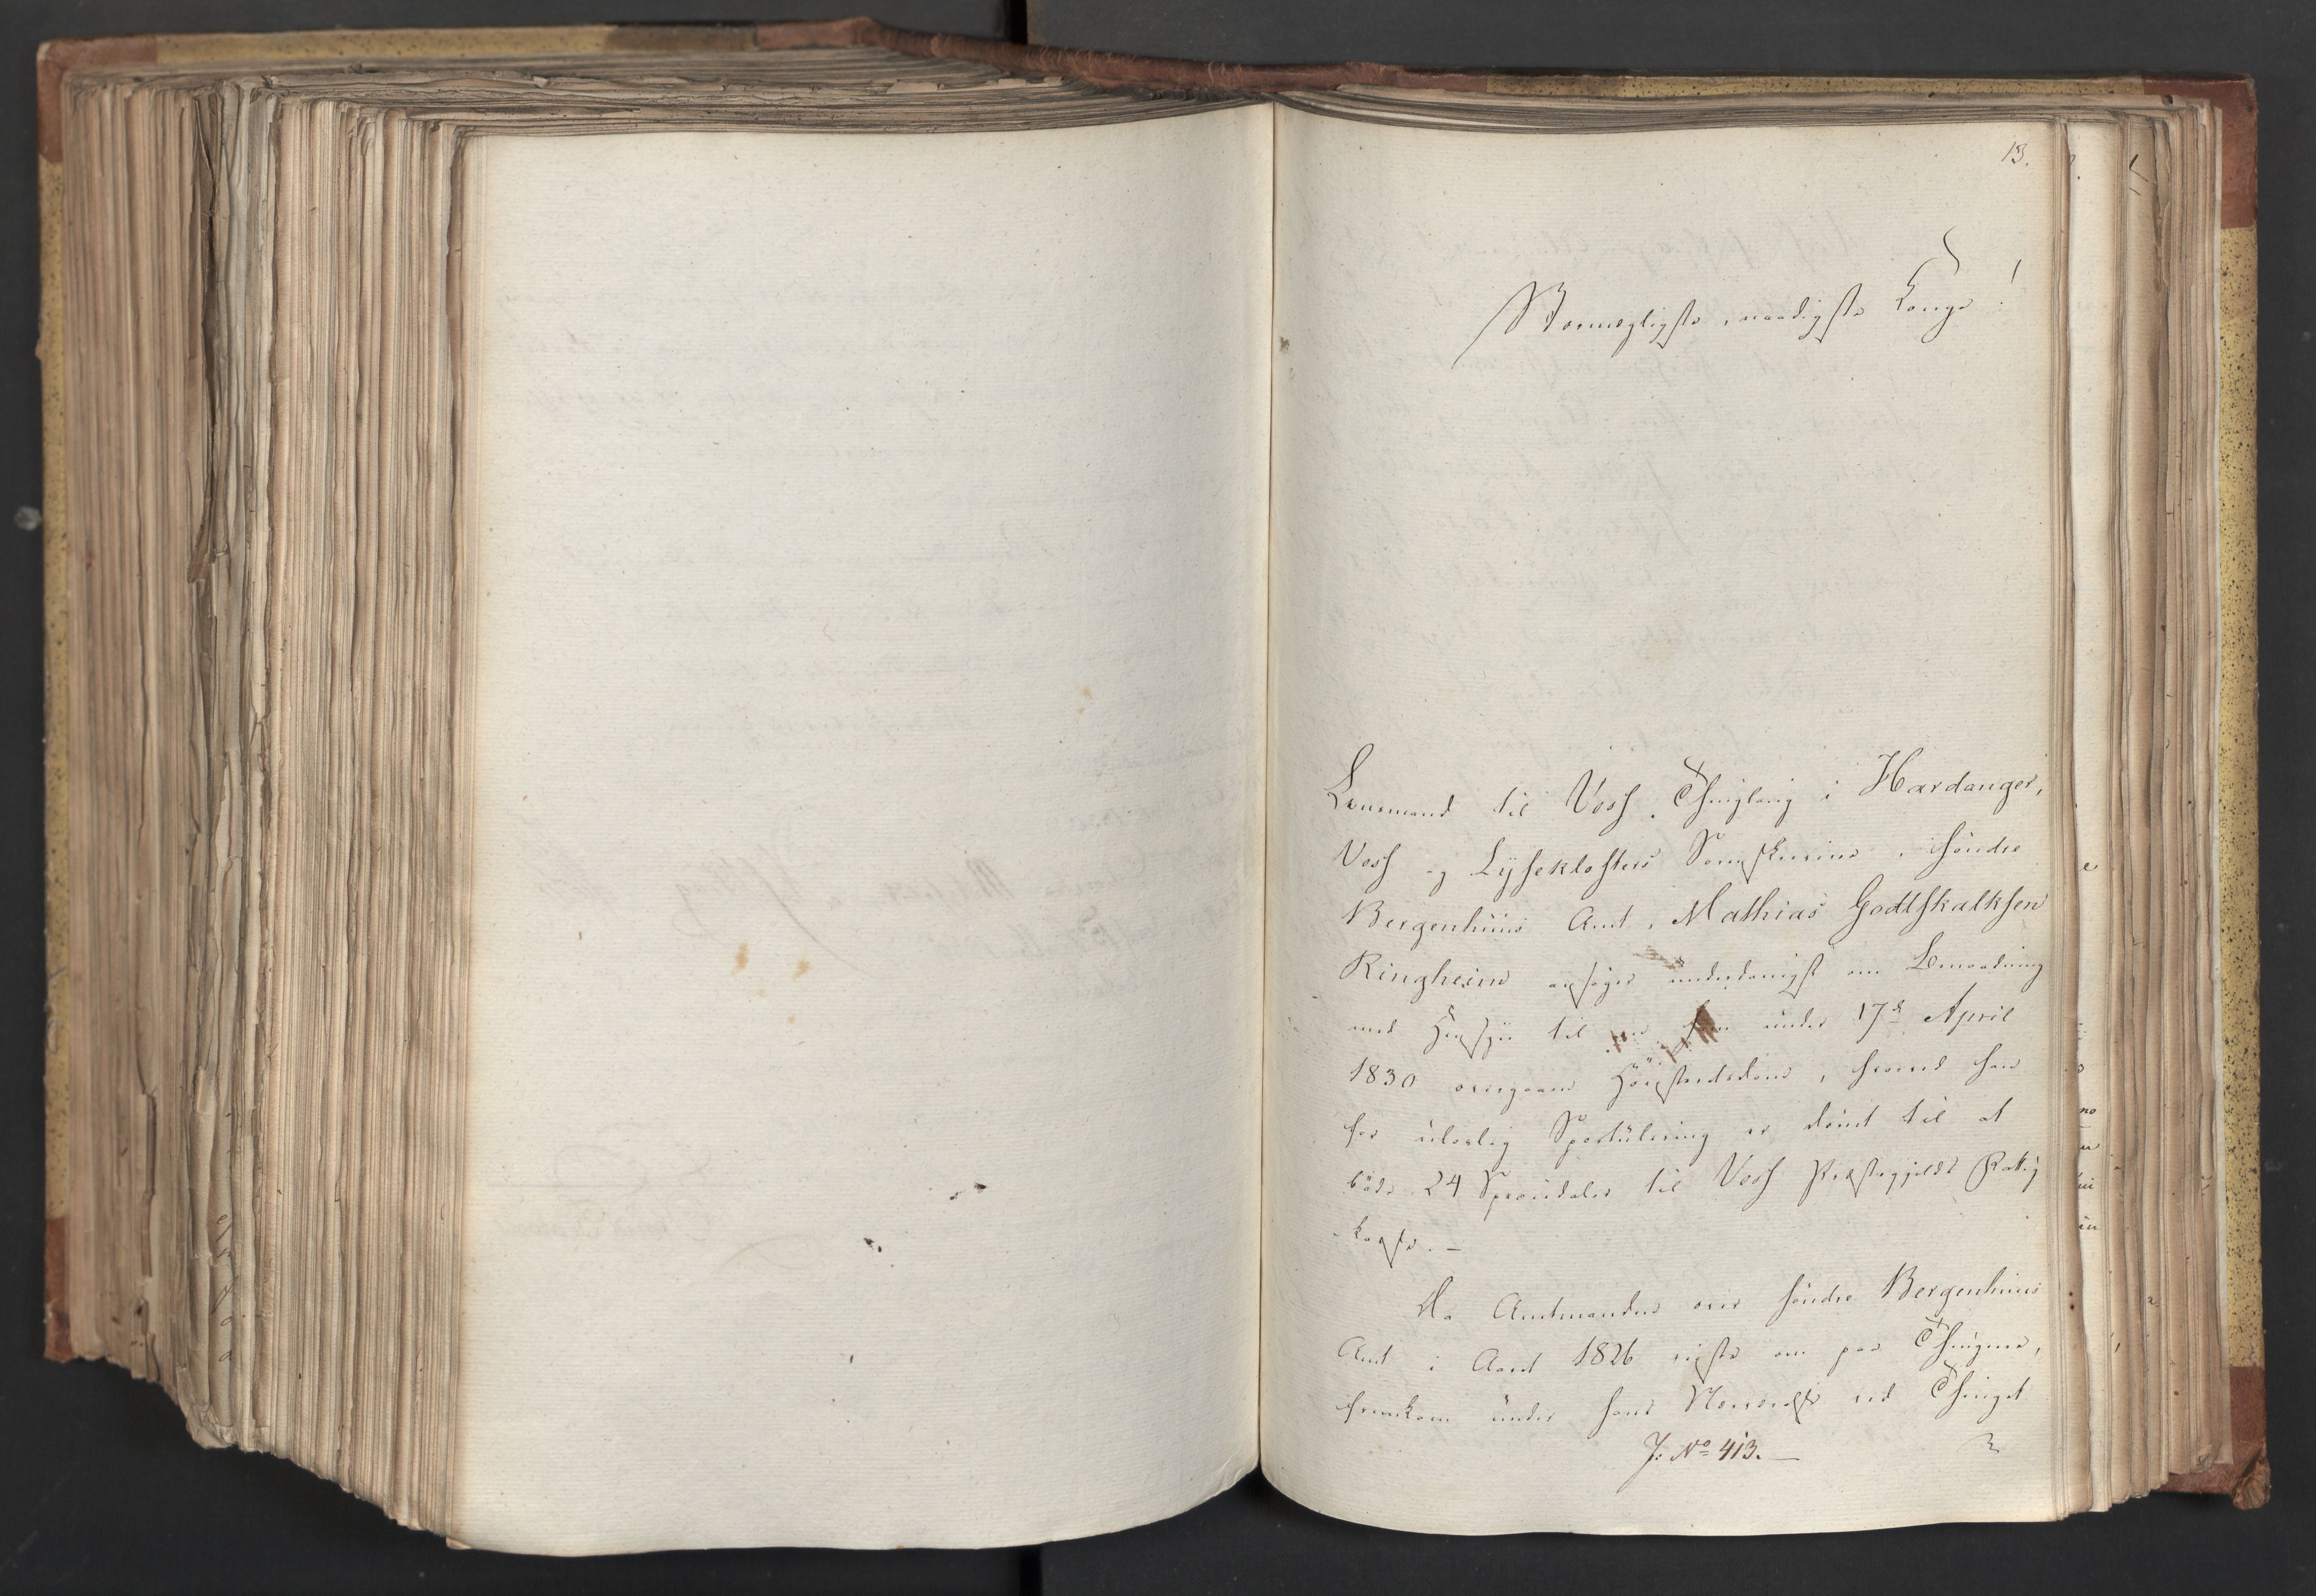 13.
Stormægtigste, naadigste Konge!
Lensmand til Voss Thinglaug i Hardanger,
Voss og Lysekloster Sorenskriverie, søndre
Bergenhuus Amt, Mathias Godtskalksen
Ringheim ansøger underdanigst om Benaadning
med Hensyn til en ham under 17de April
1830 overgaaen Høiesteretsdom, hvorved han
for ulovlig Sportulering er dømt til at
bøde 24 Speciedaler til Voss Præstegjelds Fattig
kasse. –
Da Amtmanden over søndre Bergenhuus
Amt i Aaret 1826 reiste om paa Thingene,
fremkom under hans Nærværelse ved Thinget
J: No 413. –